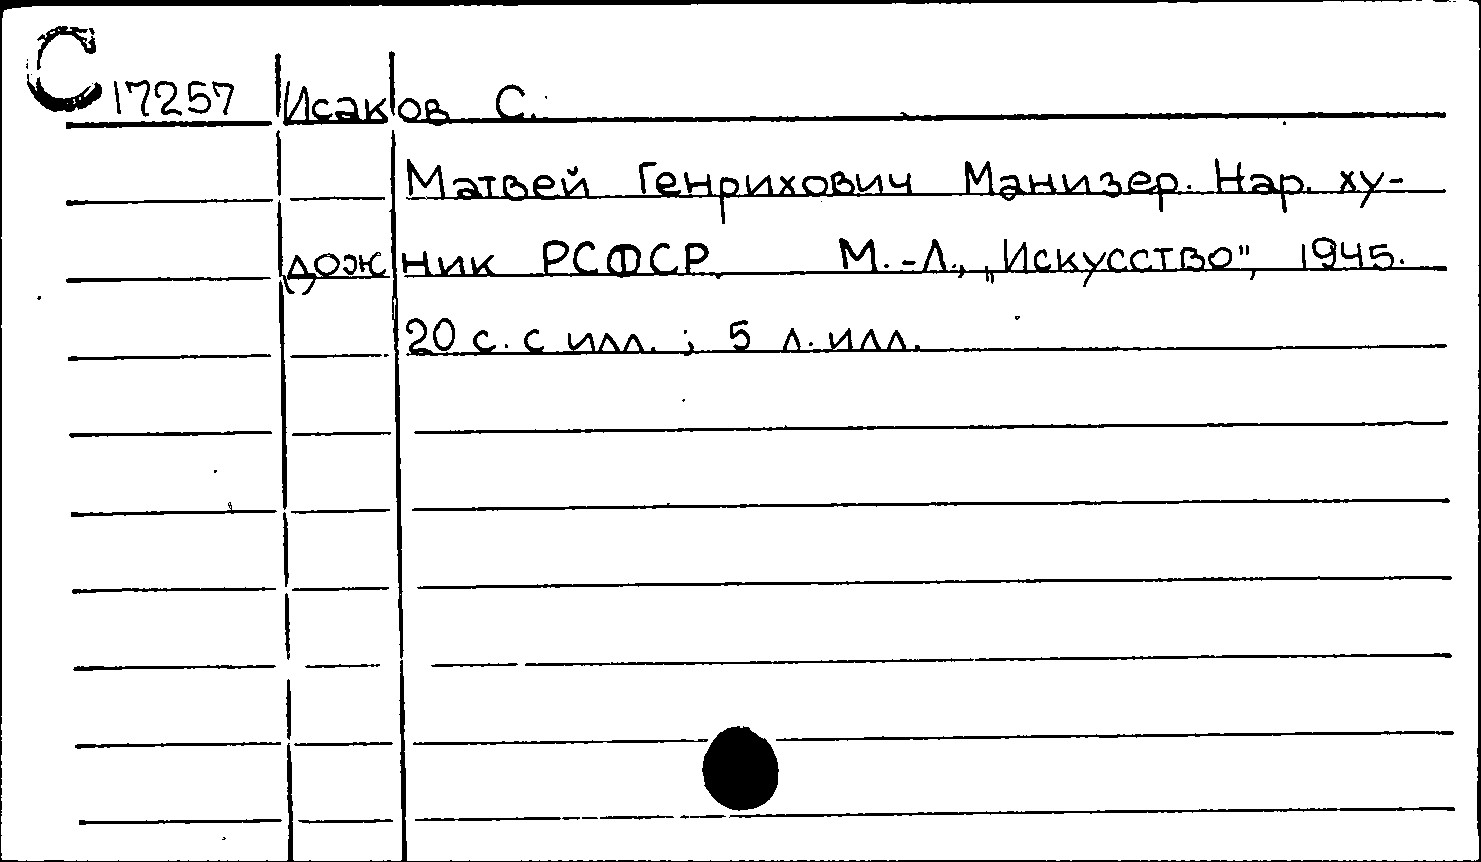 С 17257 Исаков С.
Матвей Генрихович Манизер. Нар. ху-
дожник РСФСР. М.-Л., „Искусство", 1945.
20 с. с илл. ; 5 л. илл.